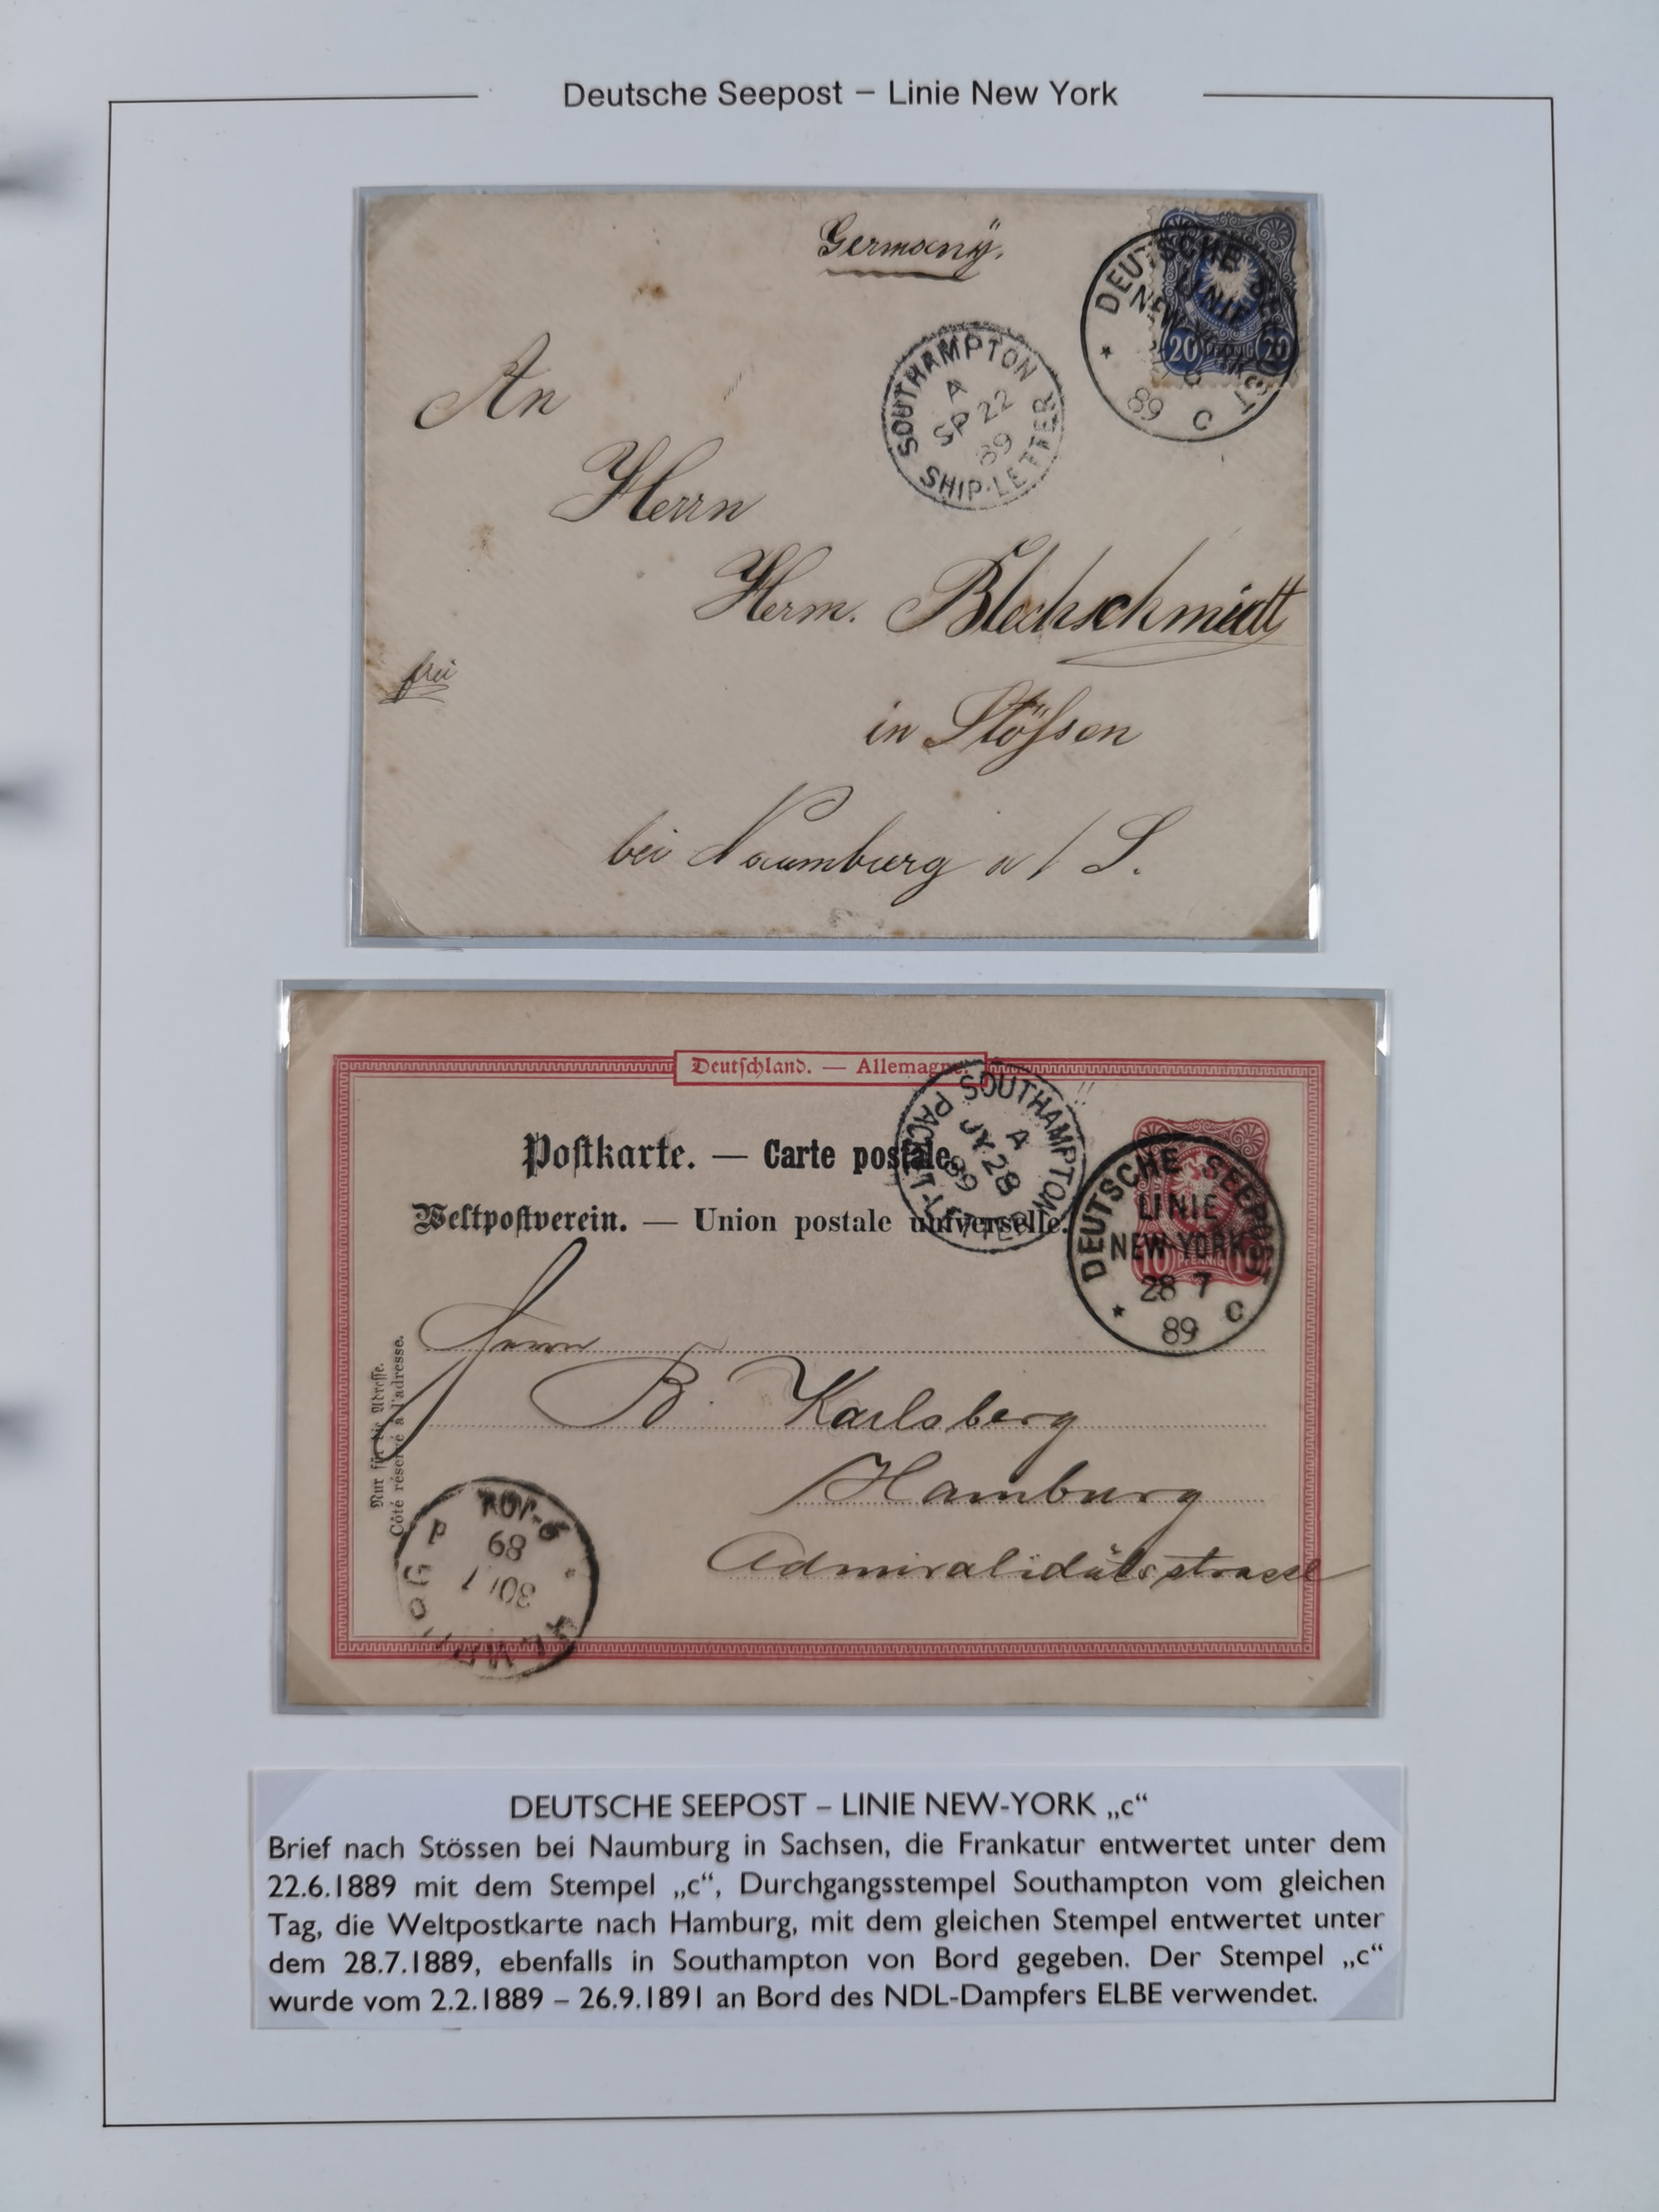 Deutsche Seepost – Linie New York
Germany.
DEUTSCHE SEEPOST
LINIE
NEW-YORK
89 c
20 PFENNIG 20
SOUTHAMPTON
A
SP 22
89
SHIP-LETTER
An
Herrn
Herm. Blechschmidt
frei
in Stößen
bei Naumburg a/S.
Deutſchland. — Allemagne.
Poſtkarte. — Carte postale.
Weltpoſtverein. — Union postale universelle.
SOUTHAMPTON
A
JY 28
89
PACKET-LETTER
DEUTSCHE SEEPOST
LINIE
NEW-YORK
28 7
89 c
10 PFENNIG 10
Herrn
B. Karlsberg
Hamburg
Admiralidätsstrasse
Nur für die Adreſſe.
Côté réservé à l'adresse.
89
DEUTSCHE SEEPOST – LINIE NEW-YORK „c“
Brief nach Stössen bei Naumburg in Sachsen, die Frankatur entwertet unter dem
22.6.1889 mit dem Stempel „c“, Durchgangsstempel Southampton vom gleichen
Tag, die Weltpostkarte nach Hamburg, mit dem gleichen Stempel entwertet unter
dem 28.7.1889, ebenfalls in Southampton von Bord gegeben. Der Stempel „c“
wurde vom 2.2.1889 – 26.9.1891 an Bord des NDL-Dampfers ELBE verwendet.